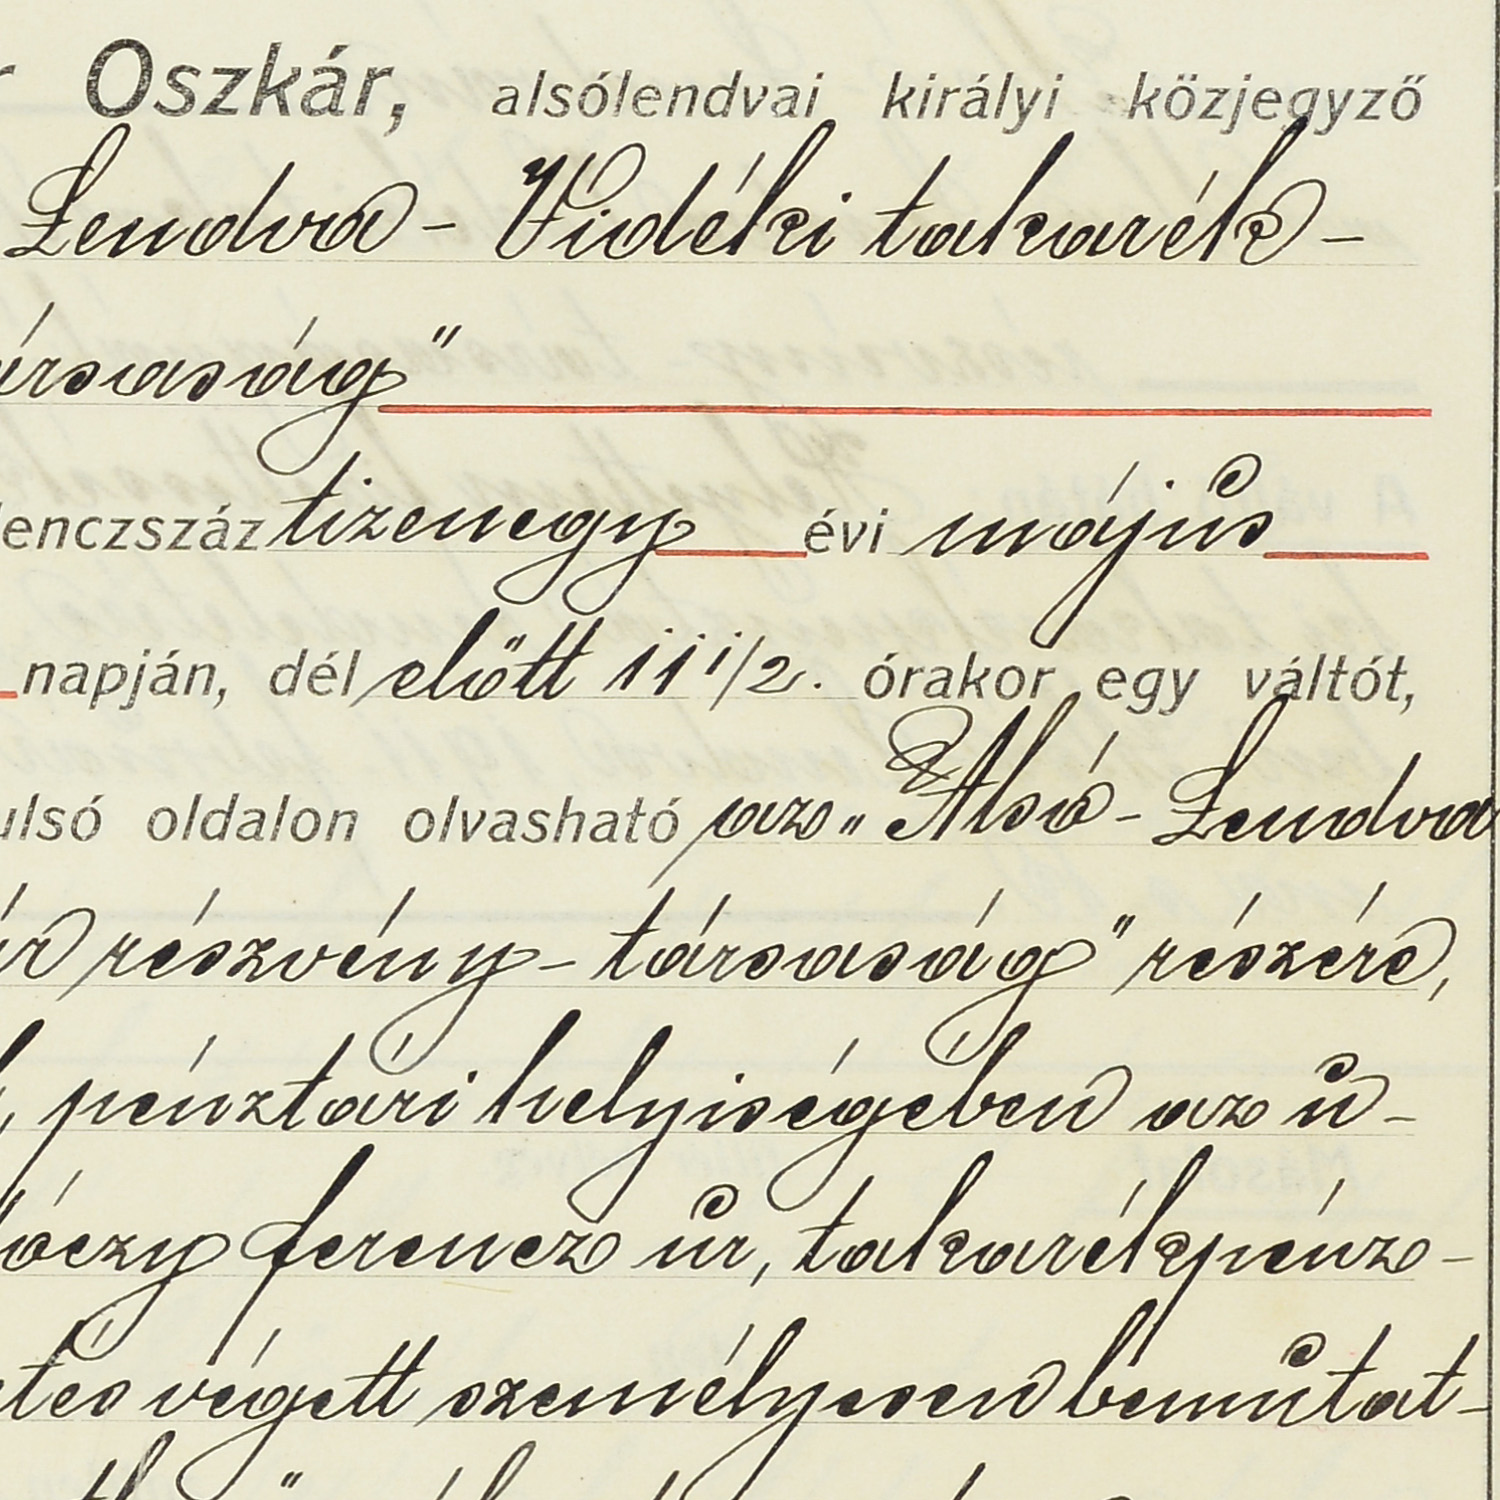 r Oszkár, alsólendvai királyi közjegyző
Lendva - Vidéki takarék -
ársaság"
lenczszáz tizenegy évi május
napján, dél előtt 11 1/2. órakor egy váltót,
ulsó oldalon olvasható az „Alsó - Lendva
ár részvény - társaság" részére,
pénztári helyiségében az u -
óczy Ferencz úr, takarékpénz -
etés végett személyesen bemutat -